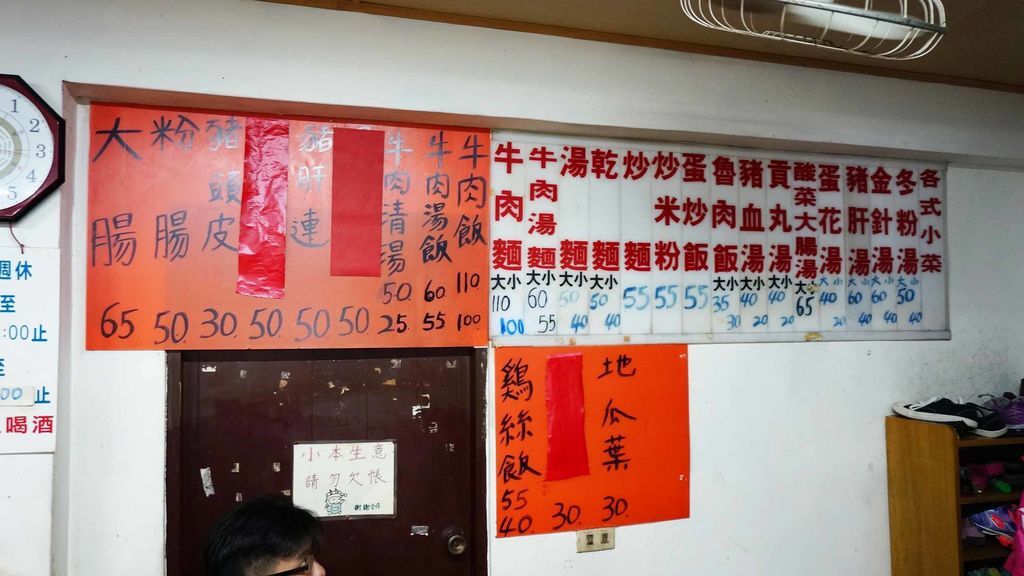 1
2
3
4
5
週休
至
:00止
至
00止
喝酒
大腸 65
粉腸 50
豬頭皮 30
50
豬肝連 50
50
牛肉清湯 50 25
牛肉湯飯 60 55
牛肉飯 110 100
牛肉麵 大小 110 100
牛肉湯麵 大小 60 55
湯麵 大小 50 40
乾麵 大小 50 40
炒麵 55
炒米粉 55
蛋炒飯 55
魯肉飯 大小 35 30
豬血湯 大小 40 20
貢丸湯 大小 40 20
酸菜大腸湯 大小 65
蛋花湯 大小 40 20
豬肝湯 大小 60 40
金針湯 大小 60 40
冬粉湯 大小 50 40
各式小菜
雞絲飯 55 40
30
地瓜葉 30
小本生意
請勿欠帳
謝謝合作